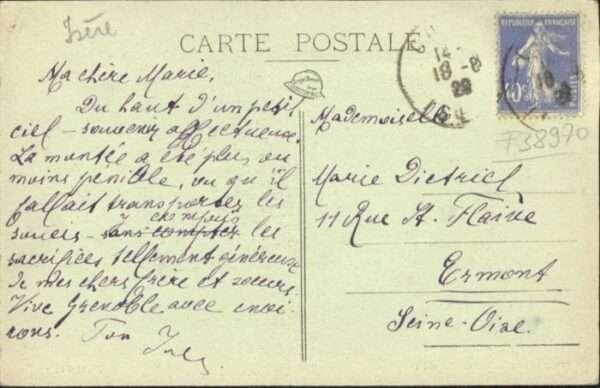 Isère
CARTE POSTALE
REPUBLIQUE FRANÇAISE
40c
14
18-8
29
18
F38970
Ma chère Marie,
Du haut d'un petit
ciel – souvenir affectueux.
La montée a été plus ou
moins pénible, vu qu'il
fallait transporter les
soucis – y compris les
sacrifices tellement généreux
de mes chers frère et soeurs.
Vive Grenoble avec envi-
rons. Ton
Mademoiselle
Marie Dietrich
11 Rue St. Flaive
Ermont
Seine-Oise.